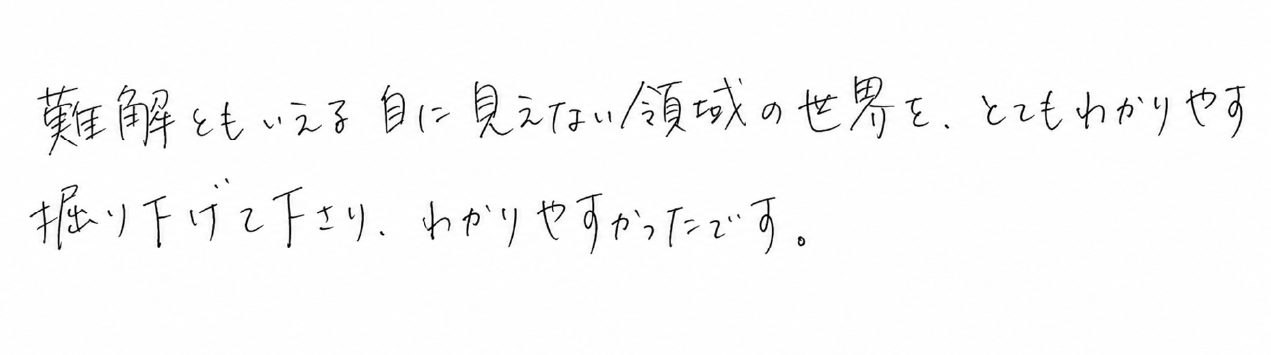 難解ともいえる目に見えない領域の世界を、とてもわかりやす
掘り下げて下さり、わかりやすかったです。